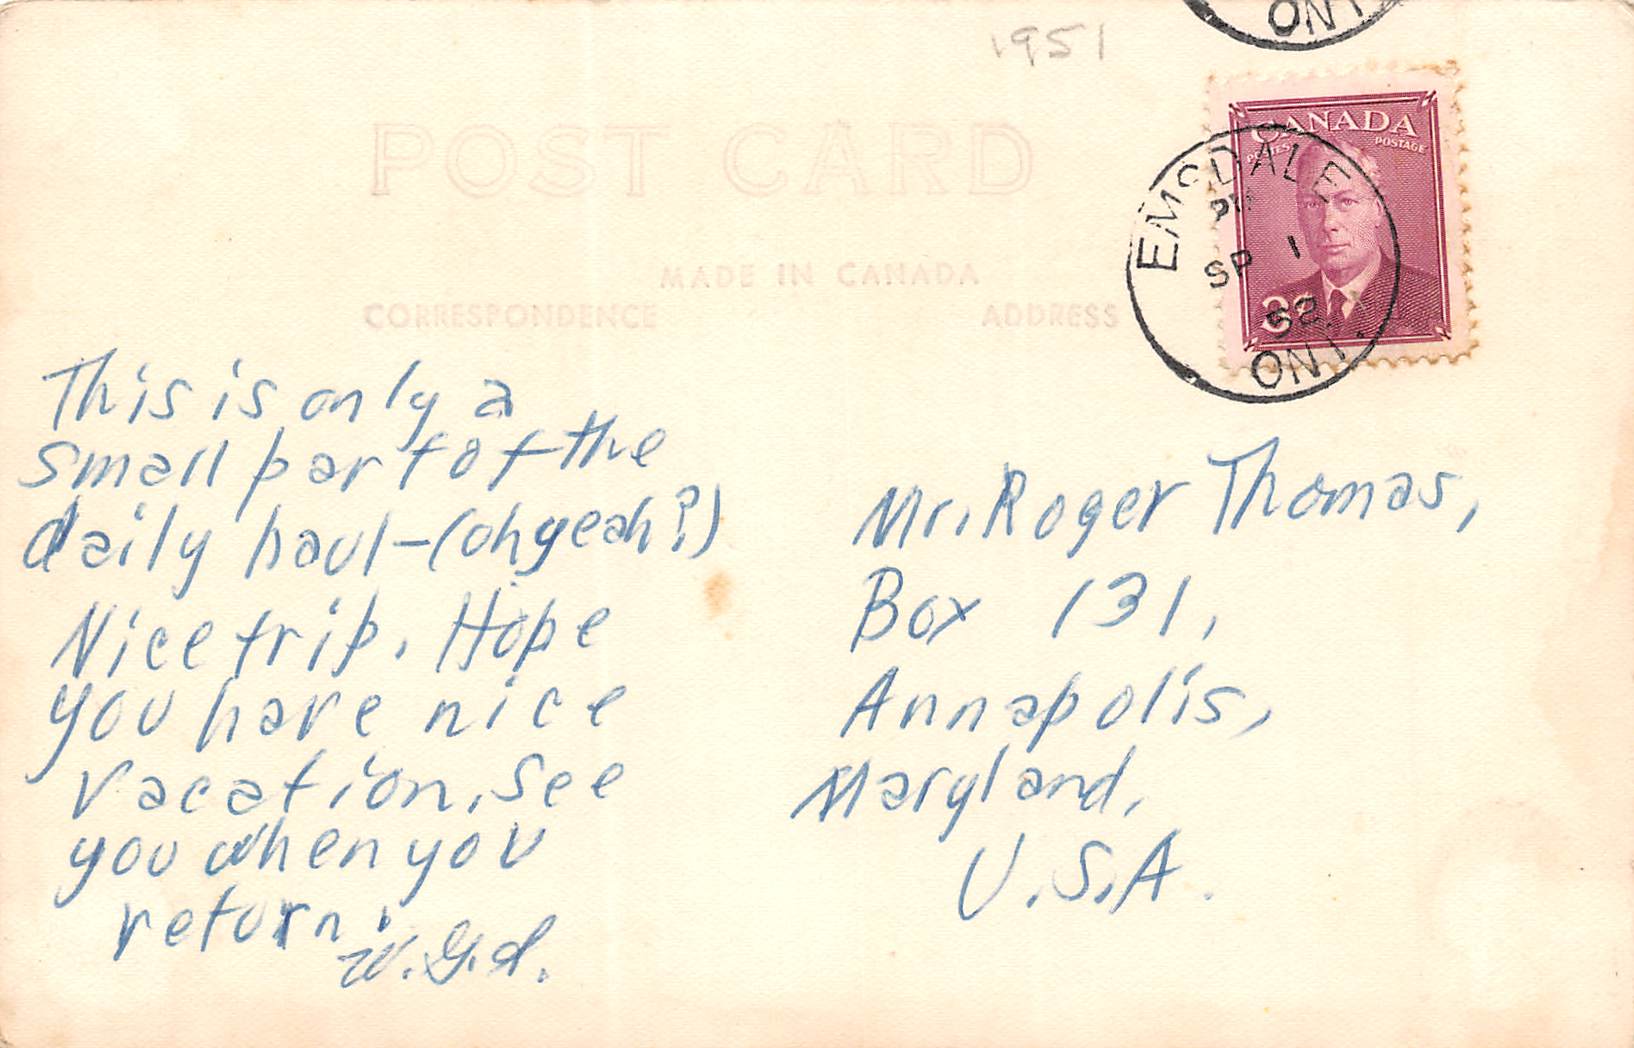 ONT
1951
POST CARD
CANADA
POSTES POSTAGE
EMSDALE
PM
SP 1
52
ONT.
MADE IN CANADA
CORRESPONDENCE ADDRESS
This is only a
small part of the
daily haul-(oh yeah?)
Nice trip. Hope
you have nice
vacation. See
you when you
return.
W.G.L.
Mr. Roger Thomas,
Box 131,
Annapolis,
Maryland,
U.S.A.